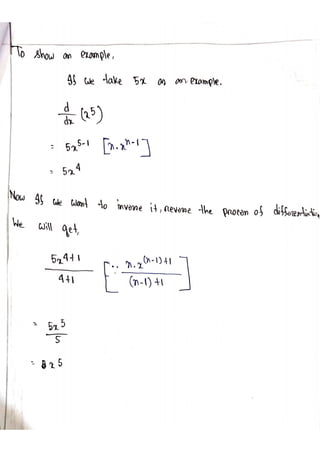 To show an example,
If we take 5x as an example.
d/dx (x^5)
= 5x^5-1 [n.x^n-1]
= 5x^4
Now If we want to inverse it, reverse the process of differentiation
We will get,
5x^4+1 / 4+1 [∵ n.x^(n-1)+1 / (n-1)+1]
= 5x^5 / 5
= x^5